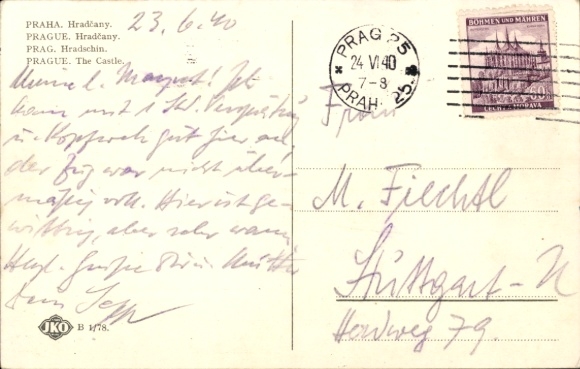 PRAHA. Hradčany.
PRAGUE. Hradčany.
PRAG. Hradschin.
PRAGUE. The Castle.
23.6.40
Meine l. Margret! Ich
kam mit 1 Std. Verspätung
u. Kopfweh gut hier an,
der Zug war nicht über-
mäßig voll. Hier ist ge-
wittrig, aber sehr warm
Herzl. Grüße Dir u. Mutter
Dein Sepp
JKO
B 1/78.
PRAG 25
24 VI 40
7-8
PRAHA 25
BÖHMEN UND MÄHREN
60
ČECHY A MORAVA
Frau
M. Fiechtl
Stuttgart-N
Herdweg 79.